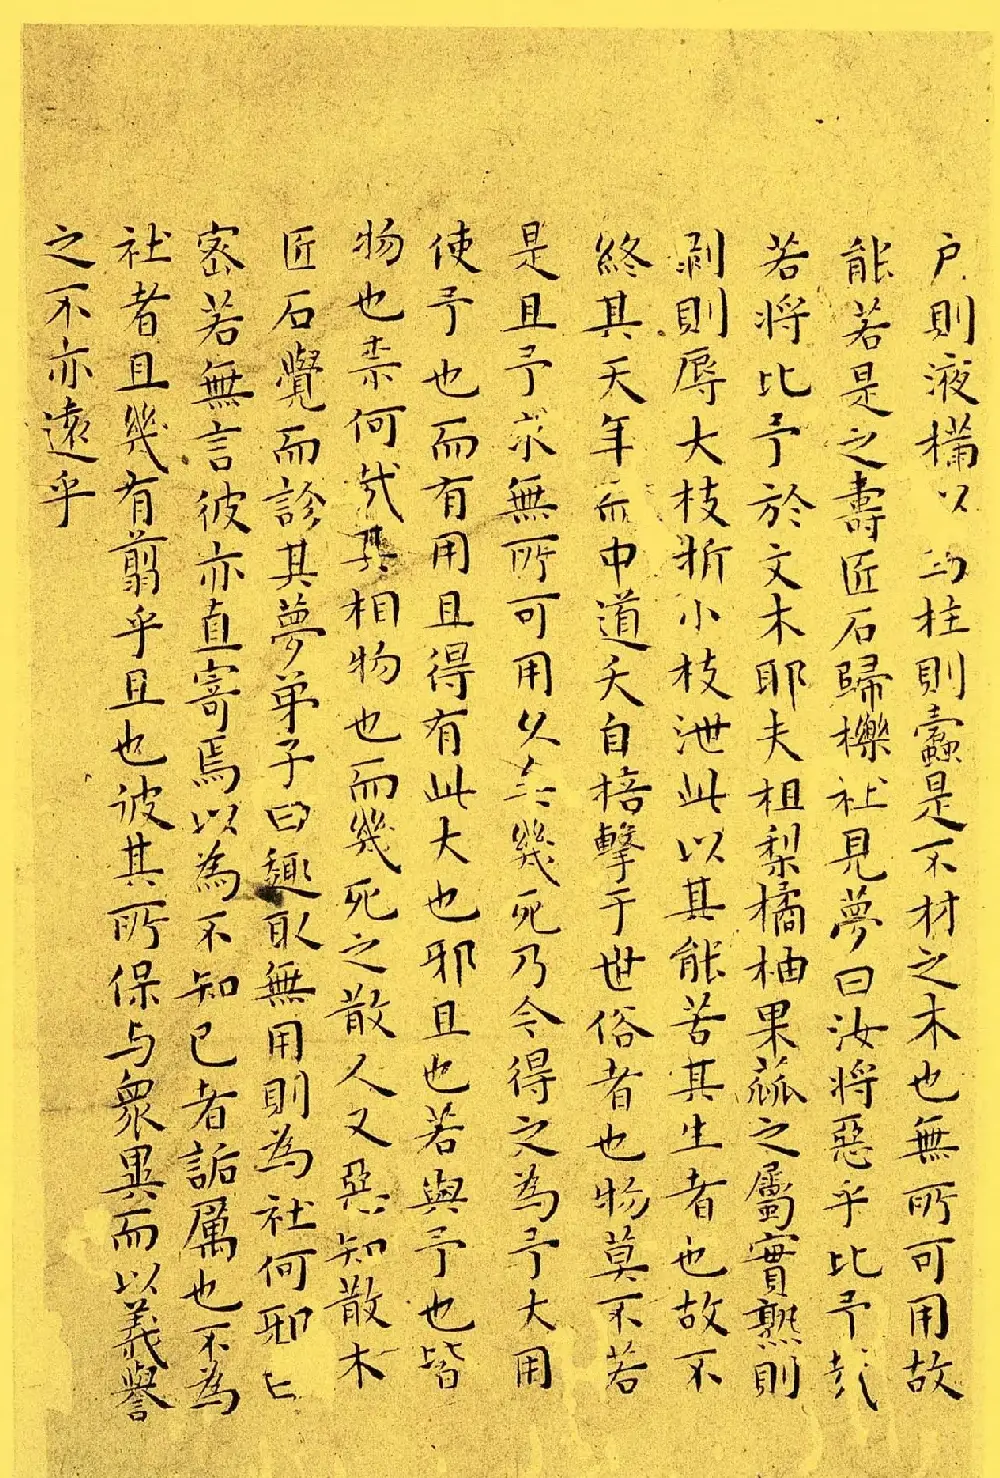 户則液樠以為柱則蠹是不材之木也無所可用故
能若是之壽匠石歸櫟社見夢曰汝將惡乎比予
若將比予於文木耶夫柤梨橘柚果蓏之屬實熟則
剥則辱大枝折小枝泄此以其能苦其生者也故不
終其天年而中道夭自掊擊于世俗者也物莫不若
是且予求無所可用久矣幾死乃今得之為予大用
使予也而有用且得有此大也邪且也若與予也皆
物也柰何哉其相物也而幾死之散人又惡知散木
匠石覺而診其夢弟子曰趣取無用則為社何邪曰
密若無言彼亦直寄焉以為不知己者詬厲也不為
社者且幾有翦乎且也彼其所保与衆異而以義譽
之不亦遠乎